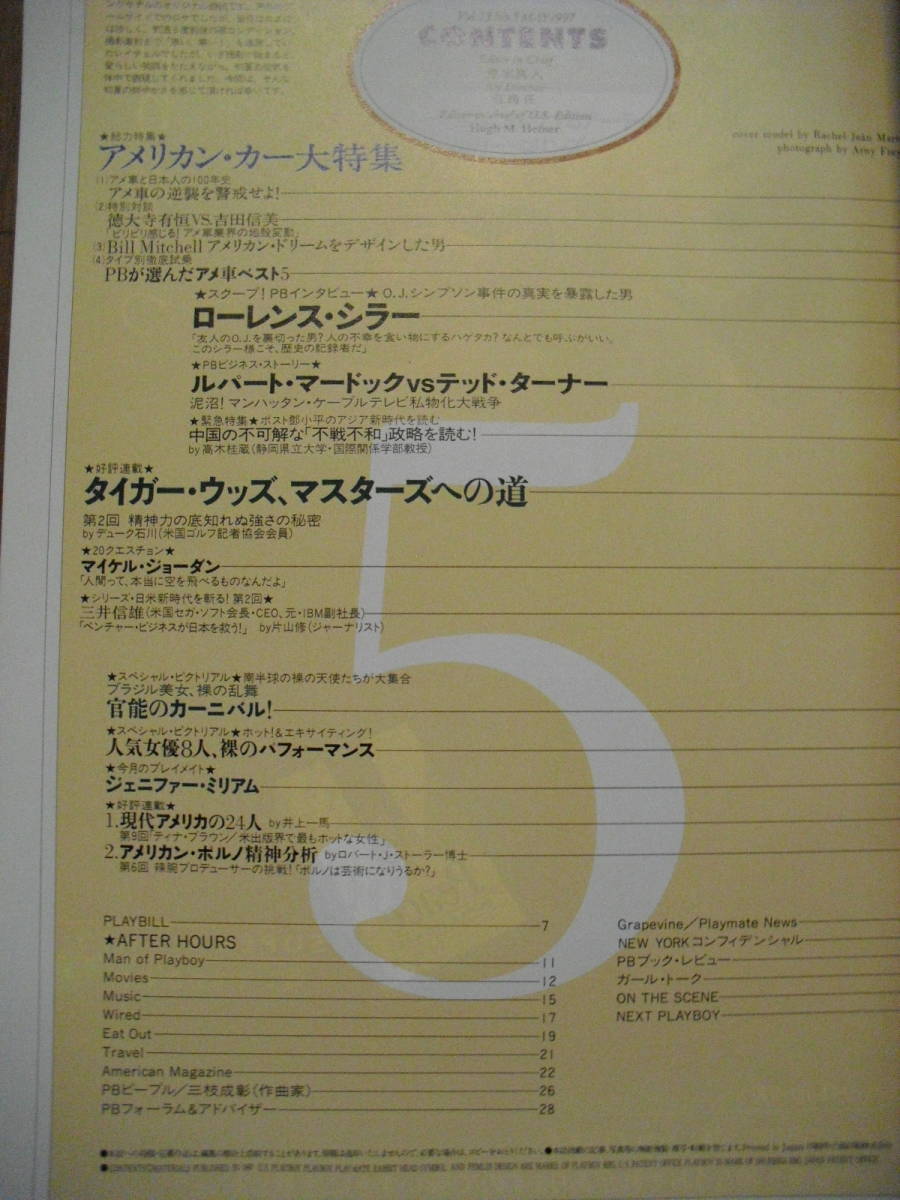 CONTENTS
Editor in Chief
Editor-in-chief of U.S. Edition
Hugh M. Hefner
cover model by Rachel Jeán
photograph by Arny
★総力特集★
アメリカン・カー大特集
(1)アメ車と日本人の100年史
アメ車の逆襲を警戒せよ!
(2)特別対談
徳大寺有恒VS.吉田信美
「ビリビリ感じる!アメ車業界の地殻変動」
(3)Bill Mitchell アメリカン・ドリームをデザインした男
(4)タイプ別徹底試乗
PBが選んだアメ車ベスト5
★スクープ!PBインタビュー★O.J.シンプソン事件の真実を暴露した男
ローレンス・シラー
「友人のO.J.を裏切った男?人の不幸を食い物にするハゲタカ?なんとでも呼ぶがいい。
このシラー様こそ、歴史の記録者だ」
★PBビジネス・ストーリー★
ルパート・マードックvsテッド・ターナー
泥沼!マンハッタン・ケーブルテレビ私物化大戦争
★緊急特集★ポスト鄧小平のアジア新時代を読む
中国の不可解な「不戦不和」政略を読む!
by高木桂蔵(静岡県立大学・国際関係学部教授)
★好評連載★
タイガー・ウッズ、マスターズへの道
第2回 精神力の底知れぬ強さの秘密
byデューク石川(米国ゴルフ記者協会会員)
★20クエスチョン★
マイケル・ジョーダン
「人間って、本当に空を飛べるものなんだよ」
★シリーズ・日米新時代を斬る!第2回★
三井信雄(米国セガ・ソフト会長・CEO、元・IBM副社長)
「ベンチャー・ビジネスが日本を救う!」 by片山修(ジャーナリスト)
5
★スペシャル・ピクトリアル★南半球の裸の天使たちが大集合
ブラジル美女、裸の乱舞
官能のカーニバル!
★スペシャル・ピクトリアル★ホット!&エキサイティング!
人気女優8人、裸のパフォーマンス
★今月のプレイメイト★
ジェニファー・ミリアム
★好評連載★
1.現代アメリカの24人 by井上一馬
第9回「ティナ・ブラウン/米出版界で最もホットな女性」
2.アメリカン・ポルノ精神分析 byロバート・J・ストーラー博士
第6回 辣腕プロデューサーの挑戦!「ポルノは芸術になりうるか?」
PLAYBILL 7
★AFTER HOURS
Man of Playboy 11
Movies 12
Music 15
Wired 17
Eat Out 19
Travel 21
American Magazine 22
PBピープル/三枝成彰(作曲家) 26
PBフォーラム&アドバイザー 28
Grapevine/Playmate News
NEW YORKコンフィデンシャル
PBブック・レビュー
ガール・トーク
ON THE SCENE
NEXT PLAYBOY